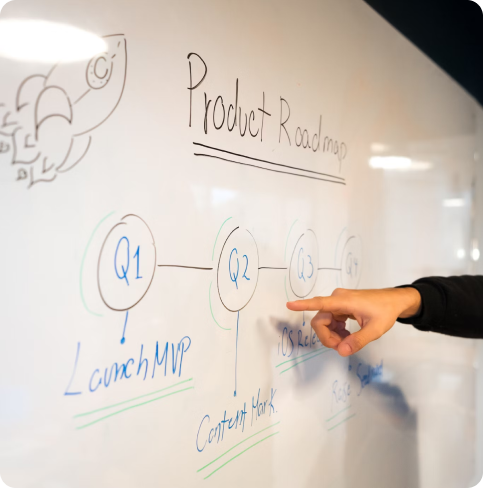 Product Roadmap
Q1
Q2
Q3
Q4
Launch MVP
Content Mark.
iOS